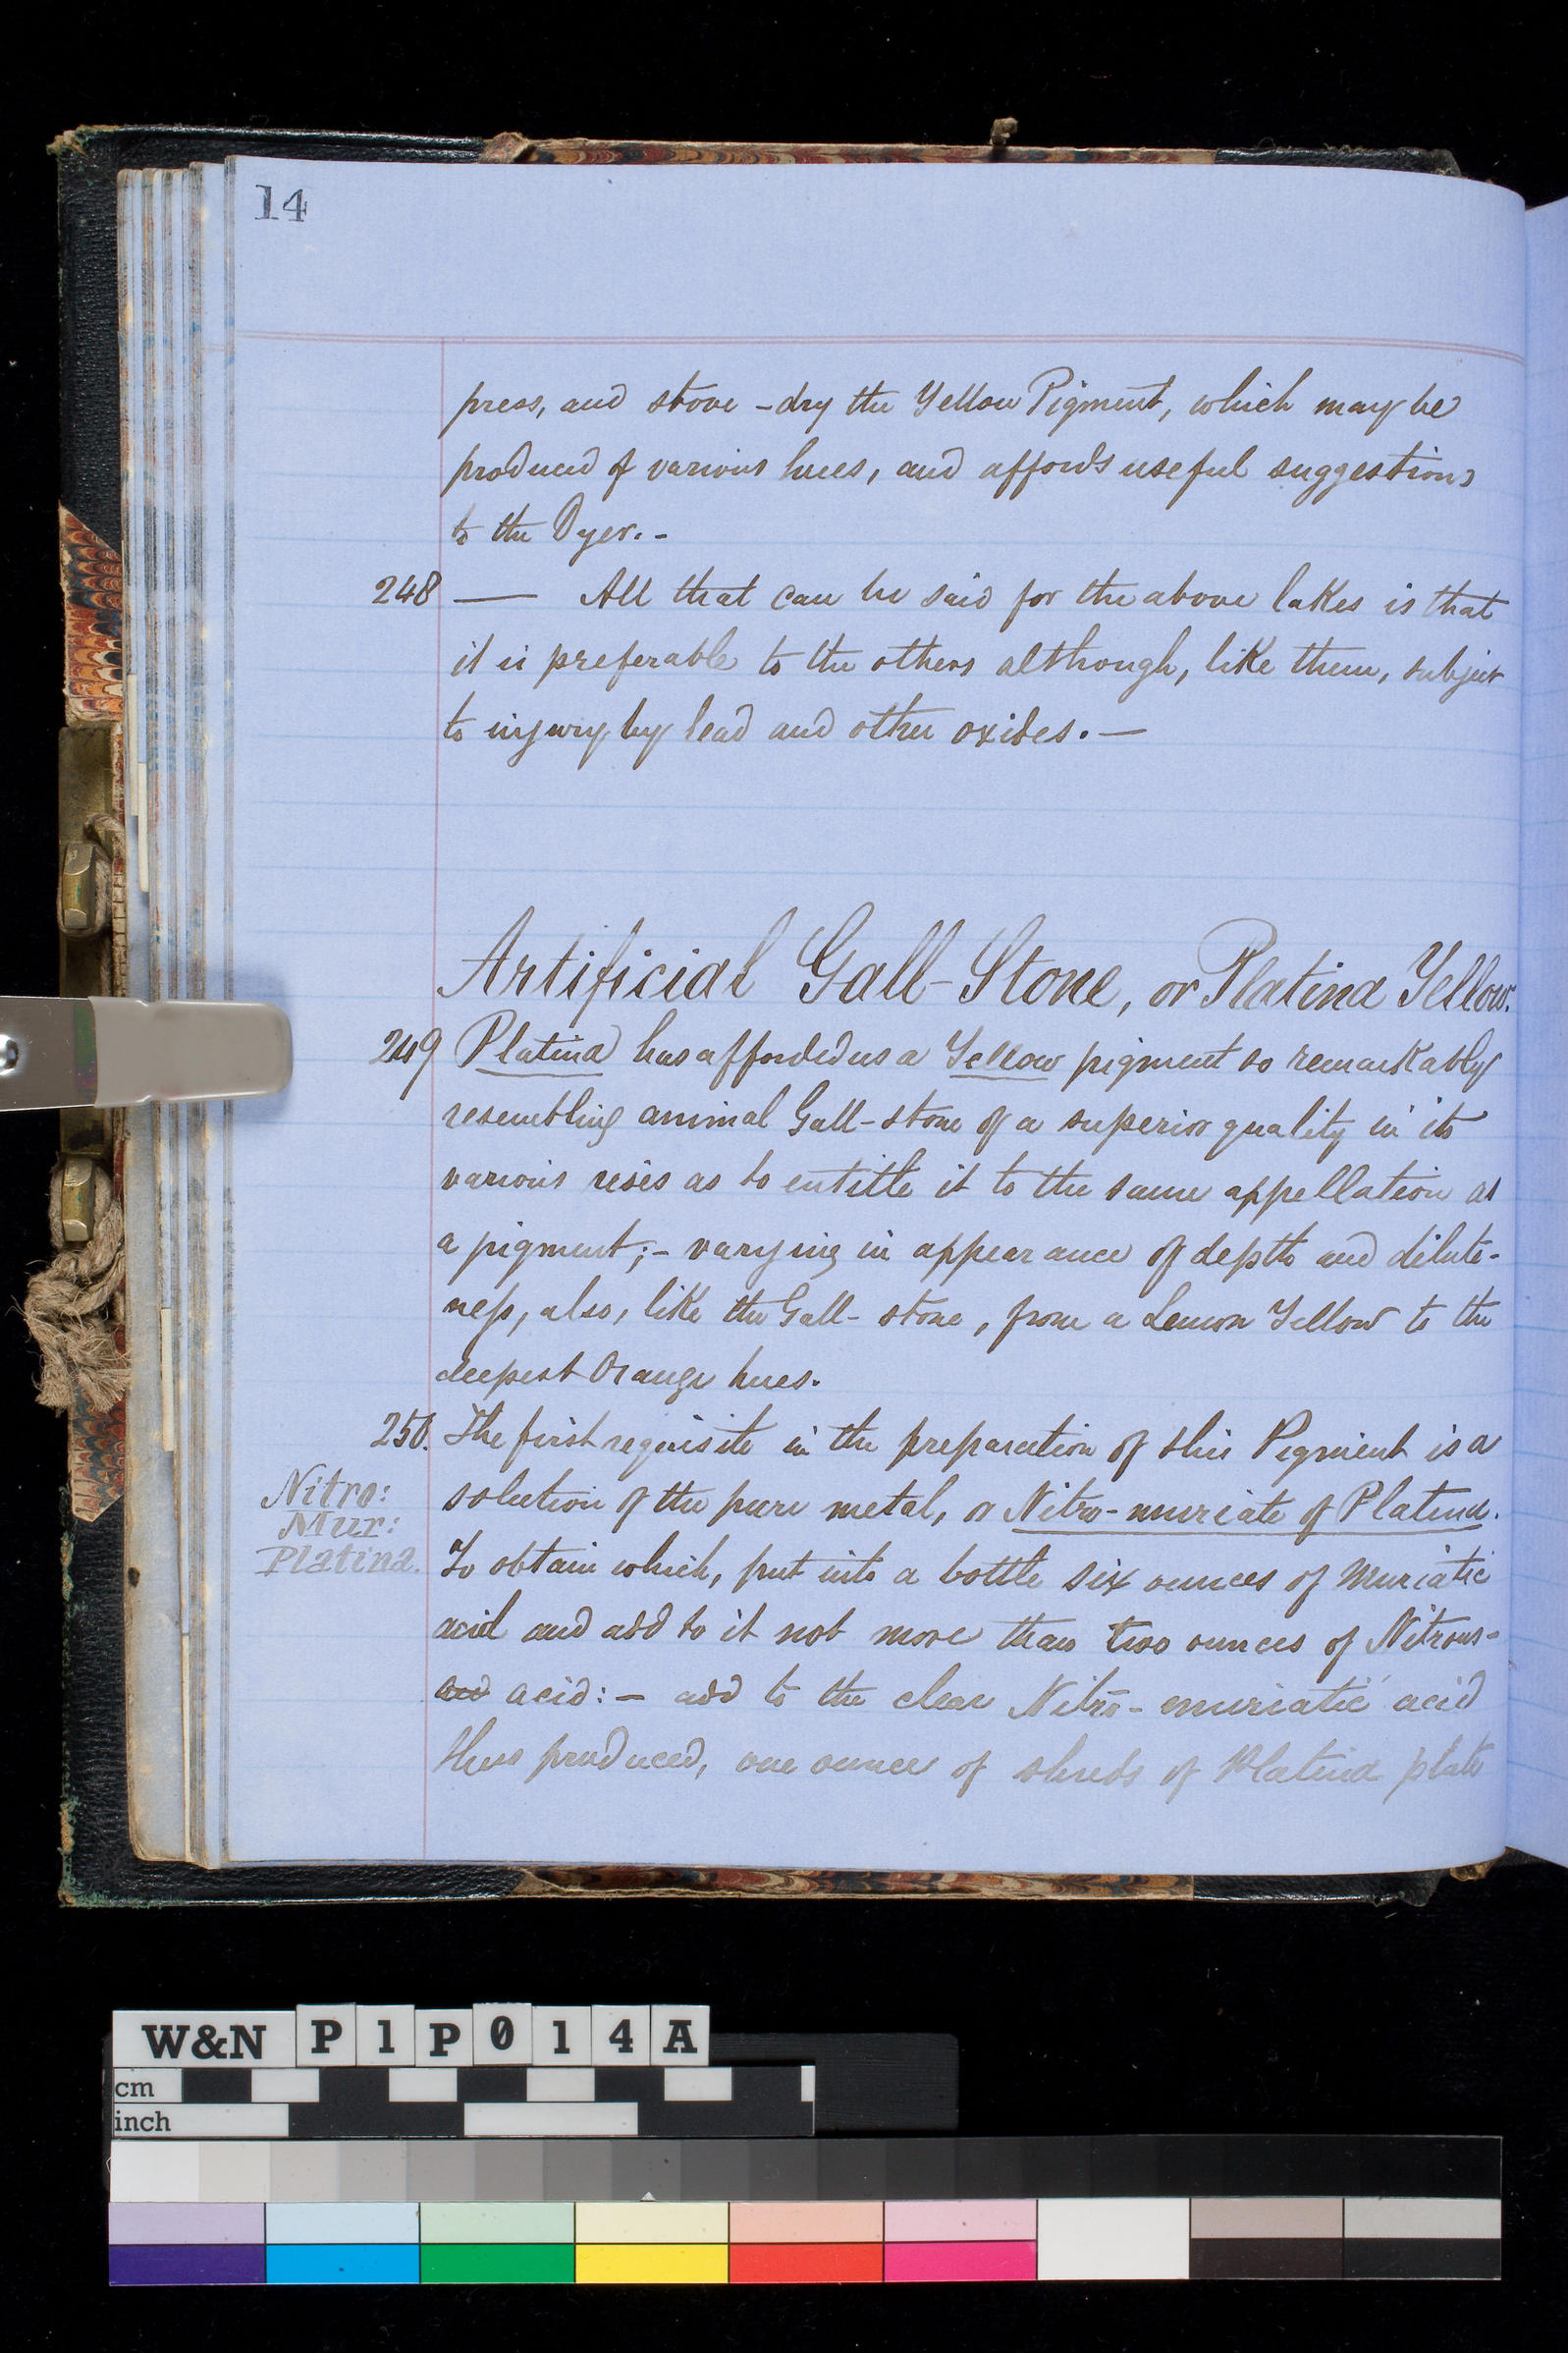 14
press, and stove-dry the Yellow Pigment, which may be
produced of various hues, and affords useful suggestions
to the Dyer.-
248 — All that can be said for the above lakes is that
it is preferable to the others although, like them, subject
to injury by lead and other oxides.—
Artificial Gall-Stone, or Platina Yellow.
249 Platina has afforded us a Yellow pigment so remarkably
resembling animal Gall-stone of a superior quality in its
various uses as to entitle it to the same appellation as
a pigment;- varying in appearance of depth and dilute-
ness, also, like the Gall-stone, from a Lemon Yellow to the
deepest Orange hues.
250. The first requisite in the preparation of this Pigment is a
Nitro:
Mur:
Platina.
solution of the pure metal, or Nitro-muriate of Platina.
To obtain which, put into a bottle six ounces of Muriatic
acid and add to it not more than two ounces of Nitrous-
acid:- add to the clear Nitro-muriatic acid
thus produced, one ounce of shreds of Platina plate
W&N P1P014A
cm
inch